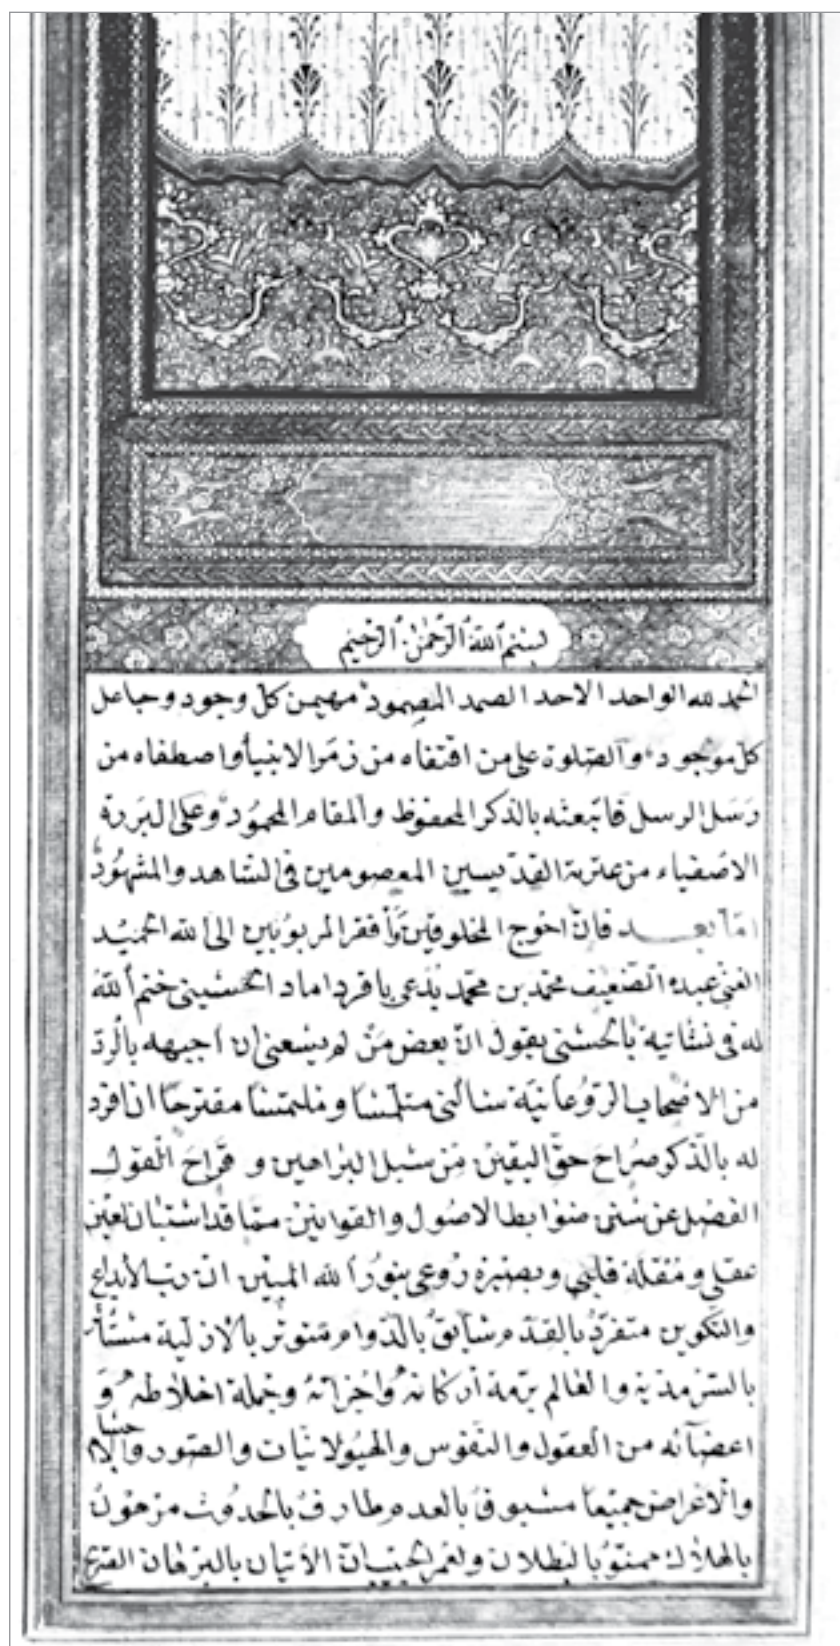 بسم الله الرحمن الرحيم
الحمد لله الواحد الاحد الصمد المصمود مهيمن كل وجود و جاعل
كل موجود والصلوة على من اقتفاه من زمر الانبياء واصطفاه من
رسل الرسل فابتعثه بالذكر المحفوظ والمقام المحمود وعلى البررة
الاصفياء من عترته القديسين المعصومين فى الشاهد والمشهود
امّا بعد فانّ احوج المخلوقين وأفقر المربوبين الى الله الحميد
الغنى عبده الضعيف محمد بن محمد يدعى باقر داماد الحسينى ختم الله
له فى نشأتيه بالحسنى يقول انّ بعض من لم يسعنى ان اجيبهه بالردّ
من الاصحاب الروعانيّة سألنى متلمسا وملتمسا مقترحا ان افرد
له بالذكر صراح حقّ اليقين من سبل البراهين و قراح القول
الفصل عن سنن ضوابط الاصول والقوانين ممّا قد استبان لعين
عقلى و مقلة قلبى وبصيرة روعى بنور الله المبين انّ ربّ الابداع
والتكوين متفرّد بالقدم سابق بالدوام متوتّر بالازلية مستأثر
بالسرمدية والعالم برمة اركانه واجزائه وجملة اخلاطه و
اعضائه من العقول والنفوس والهيولانيات والصور والا
جسام
والاعراض جميعا مسبوق بالعدم طارف بالحدوث مرهون
بالهلاك ممنوّ بالبطلان ولعمر الحبيب انّ الاتيان بالبرهان